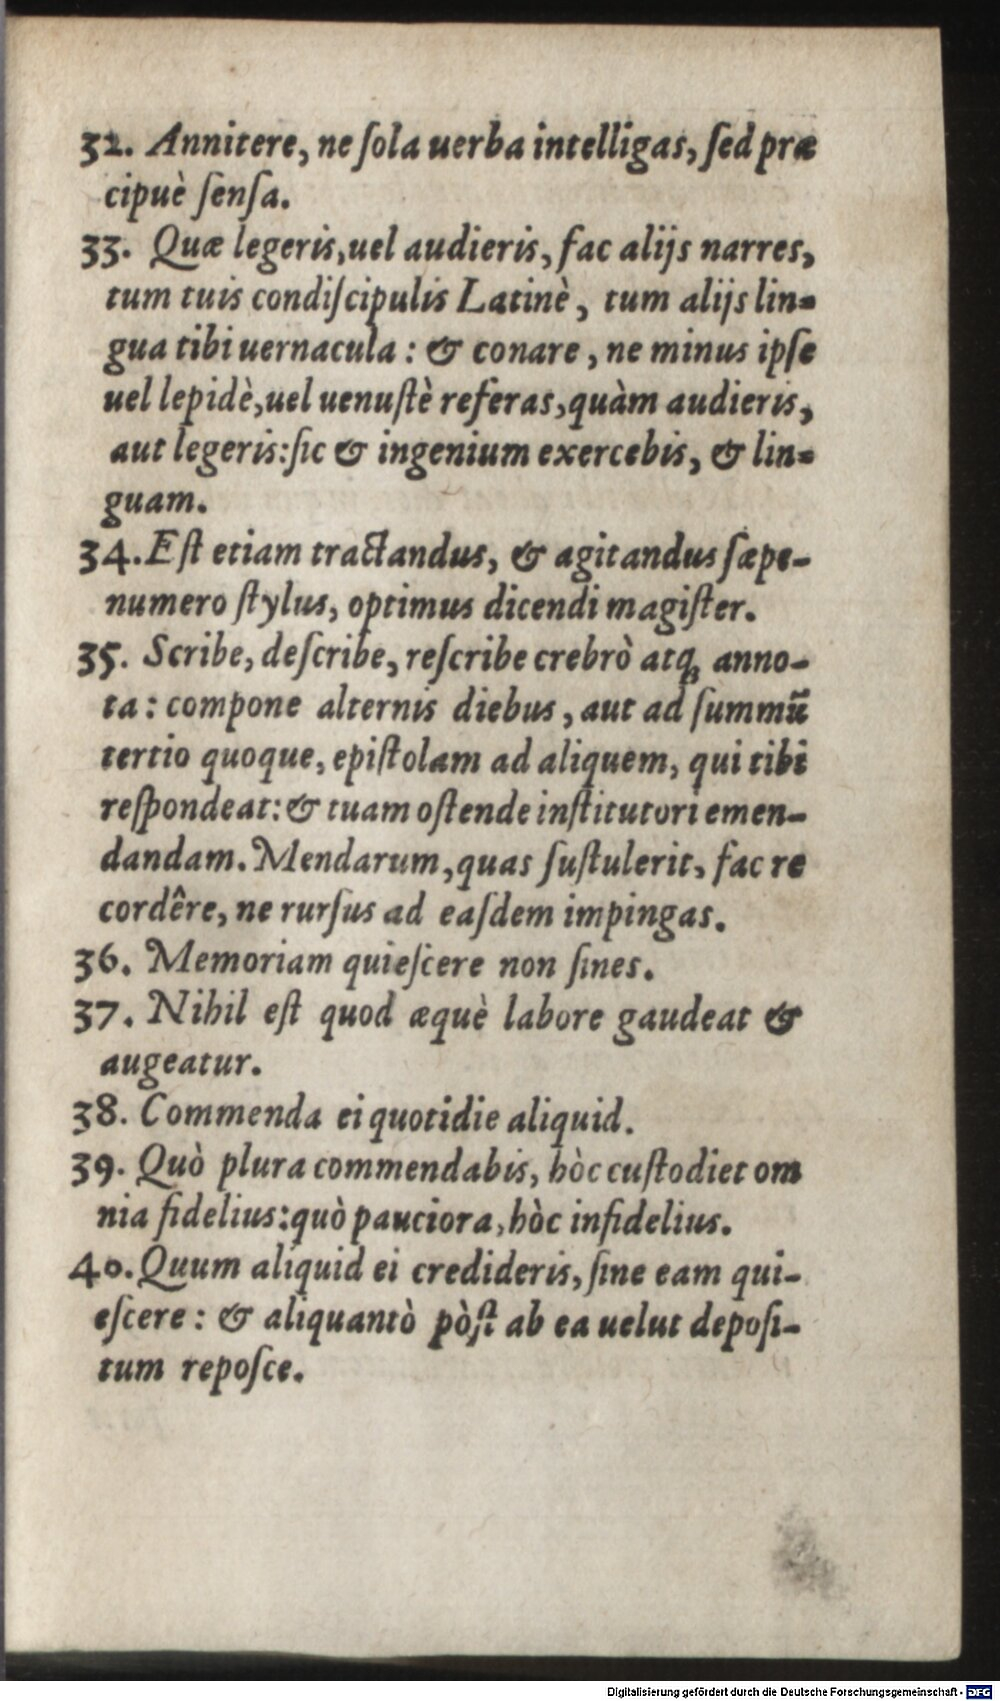 32. Annitere, ne ſola uerba intelligas, ſed præ
cipuè ſenſa.
33. Quæ legeris, uel audieris, fac alijs narres,
tum tuis condiſcipulis Latinè, tum alijs lin=
gua tibi uernacula: & conare, ne minus ipſe
uel lepidè, uel uenuſtè referas, quàm audieris,
aut legeris: ſic & ingenium exercebis, & lin=
guam.
34. Eſt etiam tractandus, & agitandus ſæpe-
numero ſtylus, optimus dicendi magiſter.
35. Scribe, deſcribe, reſcribe crebrò atq; anno-
ta: compone alternis diebus, aut ad ſummũ
tertio quoque, epiſtolam ad aliquem, qui tibi
reſpondeat: & tuam oſtende inſtitutori emen-
dandam. Mendarum, quas ſuſtulerit, fac re
cordêre, ne rurſus ad eaſdem impingas.
36. Memoriam quieſcere non ſines.
37. Nihil eſt quod æquè labore gaudeat &
augeatur.
38. Commenda ei quotidie aliquid.
39. Quò plura commendabis, hòc cuſtodiet om
nia fidelius: quò pauciora, hòc infidelius.
40. Quum aliquid ei credideris, ſine eam qui-
eſcere: & aliquantò pòſt ab ea uelut depoſi-
tum repoſce.
Digitalisierung gefördert durch die Deutsche Forschungsgemeinschaft - DFG